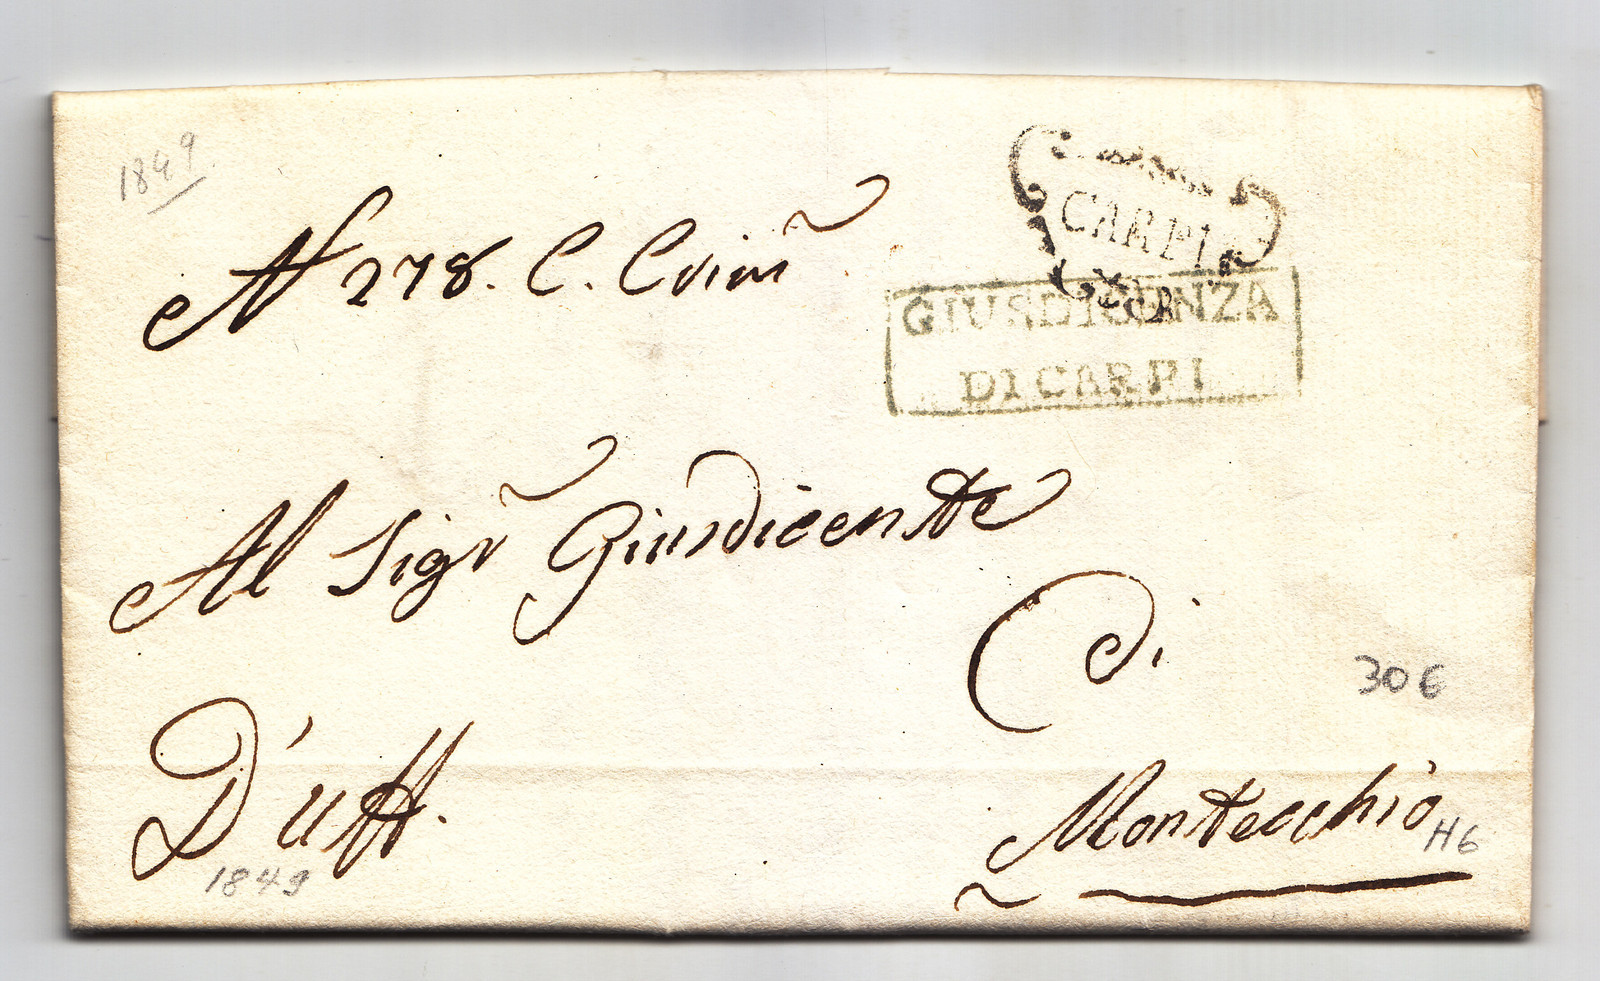 1849
CARPI
N 278. C. Crim
GIUSDICENZA
DI CARPI
Al Sigr Giusdicente
Di
30 €
D'uff.
Montecchio
H6
1849